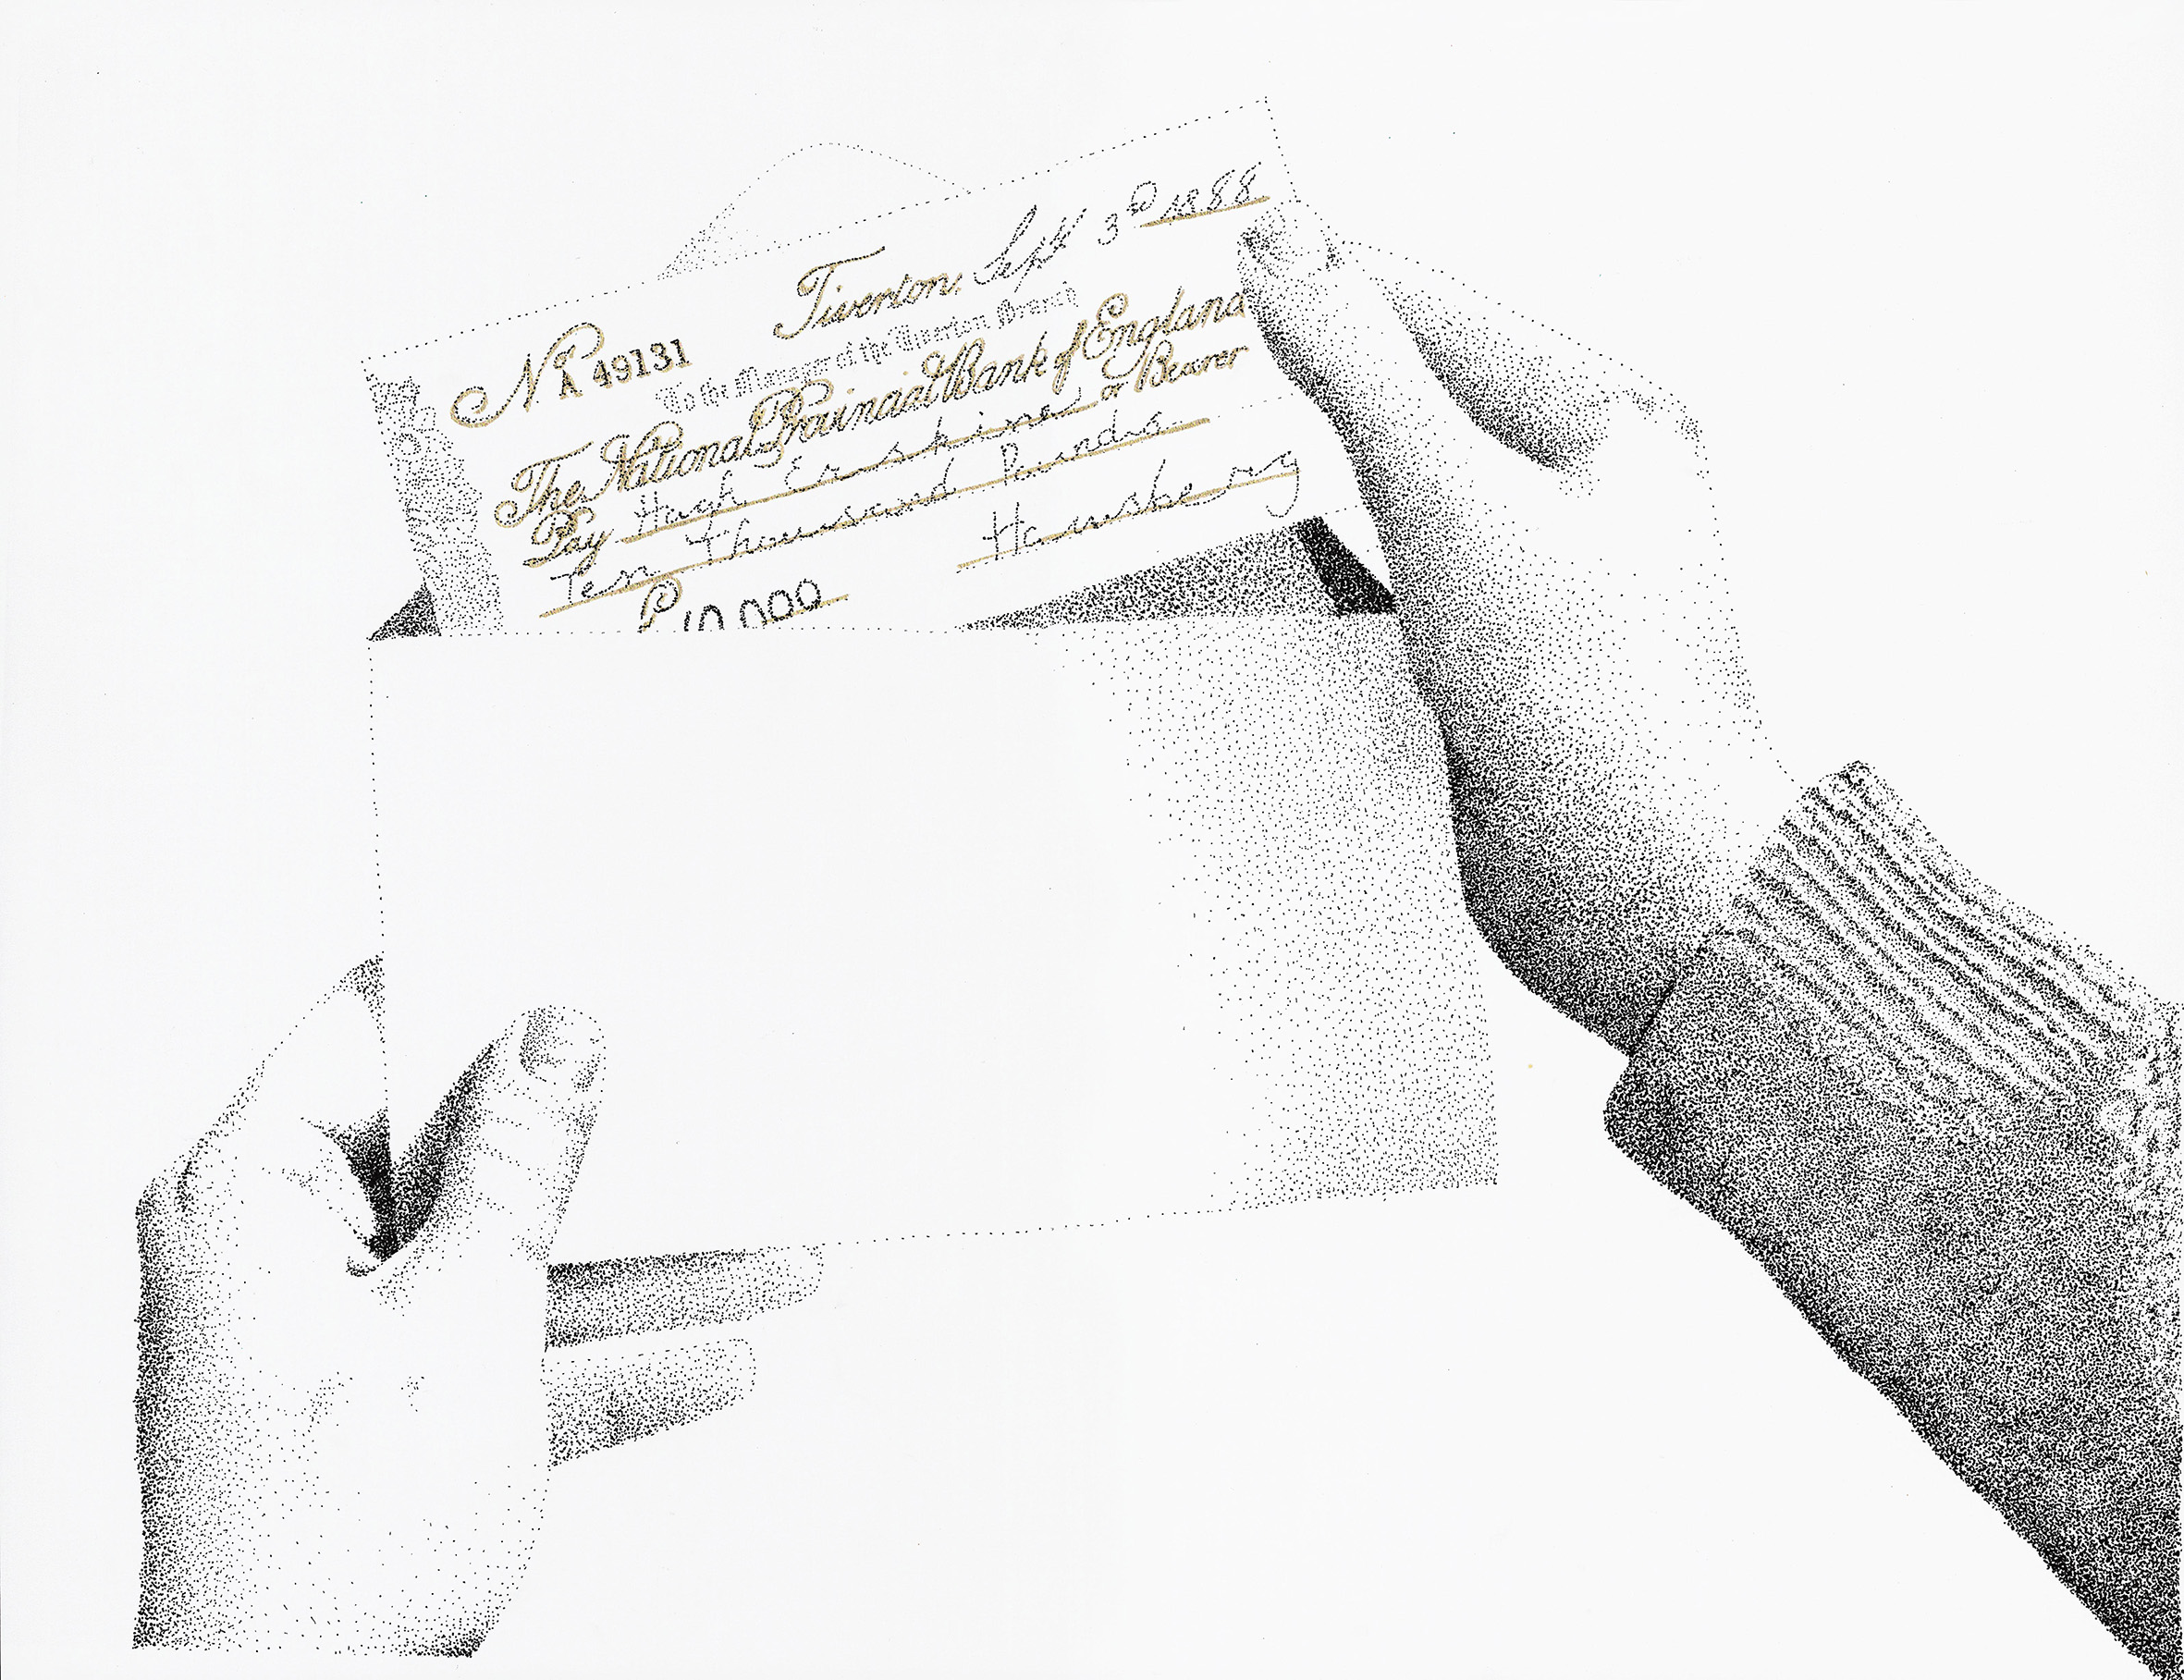 Tiverton, Sept 3D 1888
No A 49131
To the Manager of the Tiverton Branch
The National Provincial Bank of England
Pay Hugh Erskine or Bearer
Ten thousand Pounds
Hawsbery
10,000